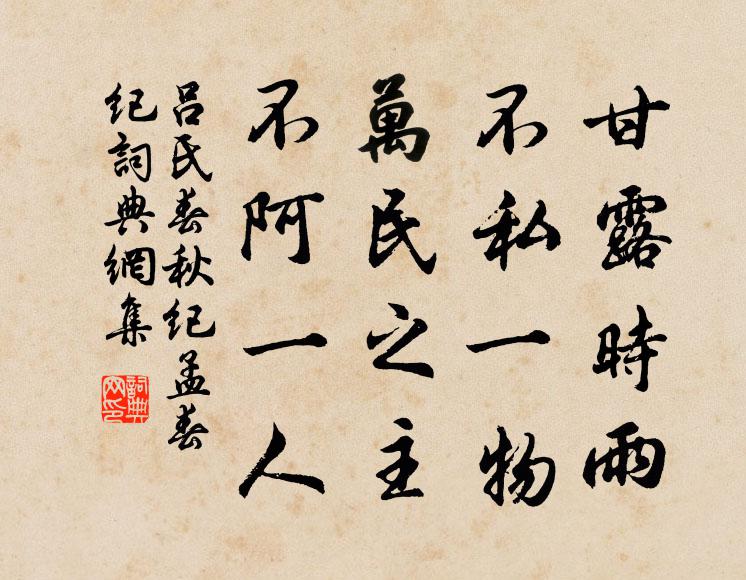 甘露時雨
不私一物
萬民之主
不阿一人
吕氏春秋纪孟春
纪詞典網集
詞典
网印